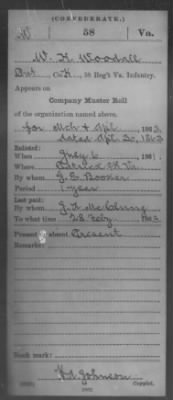 (CONFEDERATE.)
W 58 Va.
W. H. Woodall
Pvt, Co. H, 58 Reg't Va. Infantry.
Appears on
Company Muster Roll
of the organization named above,
for Mch & Apl, 1862
dated Apl. 30, 1862
Enlisted:
When July 6, 1861
Where Patrick Va.
By whom J. E. Booker
Period 1 year
Last paid:
By whom
To what time 28 Feby, 1862
Present or absent Present
Remarks:
Book mark:
Johnson
Copyist.